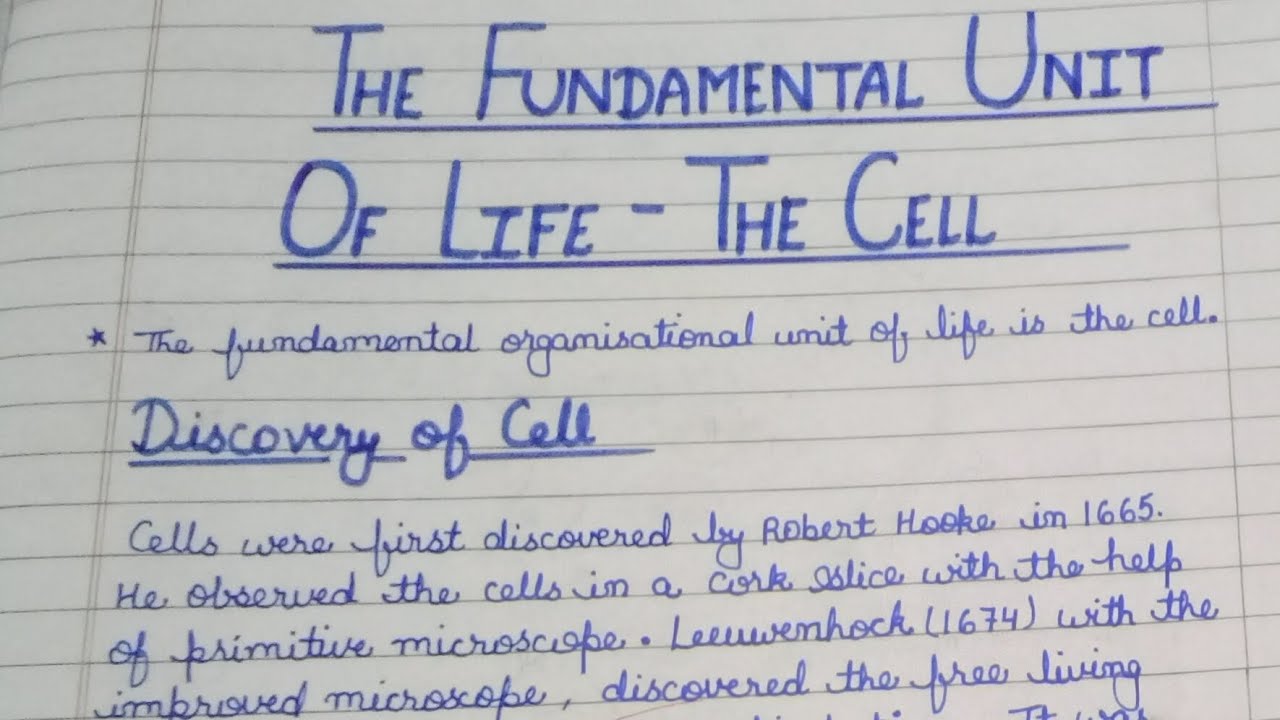 THE FUNDAMENTAL UNIT
OF LIFE - THE CELL
* The fundamental organisational unit of life is the cell.
Discovery of Cell
Cells were first discovered by Robert Hooke in 1665.
He observed the cells in a cork slice with the help
of primitive microscope. Leeuwenhock (1674) with the
improved microscope, discovered the free living
It was